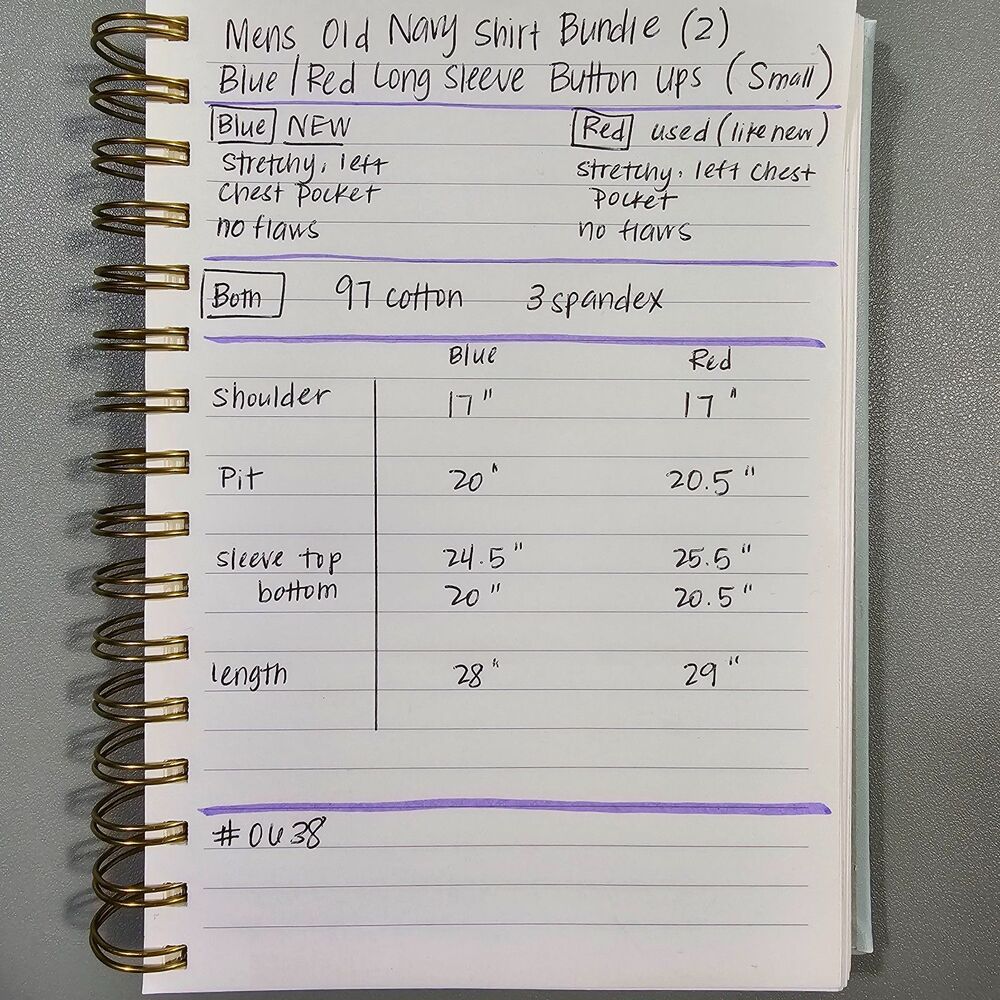 Mens Old Navy Shirt Bundle (2)
Blue/Red Long Sleeve Button Ups (Small)
Blue NEW
stretchy, left
chest pocket
no flaws
Red used (like new)
stretchy, left chest
pocket
no flaws
Both 97 cotton 3 spandex
Blue Red
shoulder 17" 17"
Pit 20" 20.5"
sleeve top 24.5" 25.5"
bottom 20" 20.5"
length 28" 29"
#0638